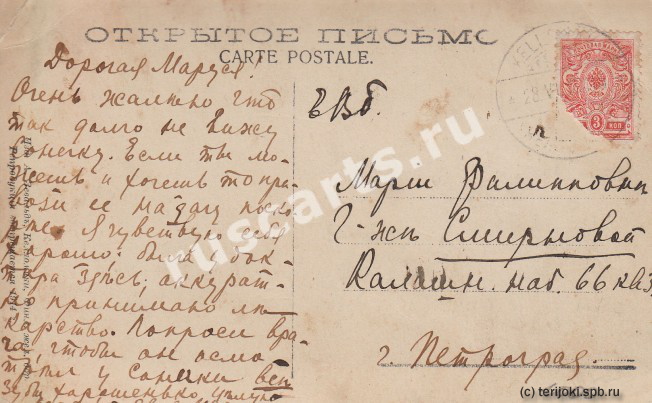 ОТКРЫТОЕ ПИСЬМО
CARTE POSTALE.
Дорогая Маруся!
Очень жалко что
так долго не вижу
Сонечку. Если ты мо-
жешь и хочешь то при-
вози ее на дачу поско-
рее. Я чувствую себя
хорошо: была у док-
тора здесь, аккурат-
но принимаю ле-
карство. Попроси вра-
ча, чтобы он осмо-
трел у Сонички все
зубы хорошенько
ЕВб.
Марии Филипповны
Г-жи Смирновой
Калашн. наб. 66 кв
г. Петроград
3 КОП
ruskarts.ru
(c) terijoki.spb.ru